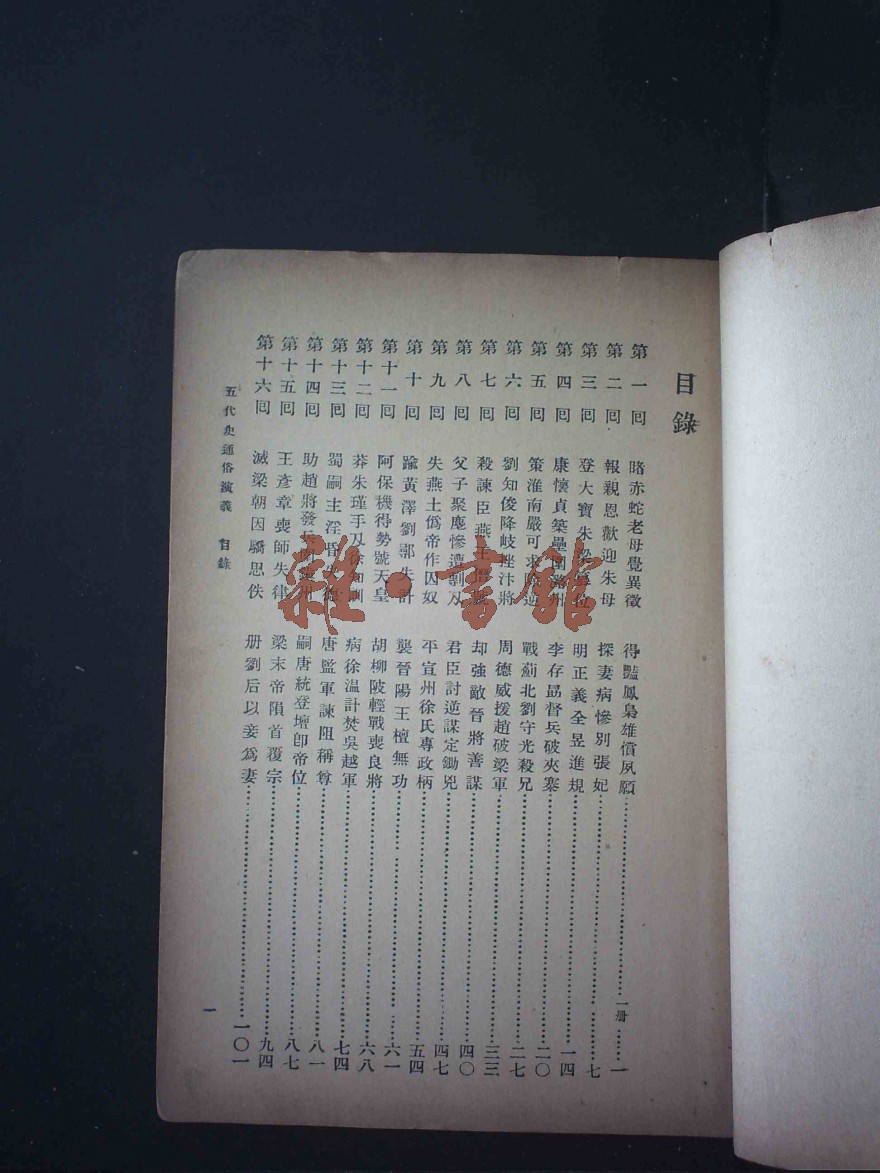 目錄
第一囘 睹赤蛇老母覺異徵 得豔鳳梟雄償夙願……一册……一
第二囘 報親恩歡迎朱母 探妻病慘別張妃……七
第三囘 登大寶朱梁篡位 明正義全昱進規……一四
第四囘 康懷貞築壘圍潞州 李存勗督兵破夾寨……二〇
第五囘 策淮南嚴可求除逆 戰薊北劉守光殺兄……二七
第六囘 劉知俊降岐挫汴將 周德威援趙破梁軍……三三
第七囘 殺諫臣燕王僭號 却強敵晉將善謀……四〇
第八囘 父子聚麀慘遭剸刃 君臣討逆謀定鋤兇……四七
第九囘 失燕土僞帝作囚奴 平宣州徐氏專政柄……五四
第十囘 踰黃澤劉鄩失計 襲晉陽王檀無功……六一
第十一囘 阿保機得勢號天皇 胡柳陂輕戰喪良將……六八
第十二囘 莽朱瑾手刃徐知訓 病徐温計焚吳越軍……七四
第十三囘 蜀嗣主淫昏失德 唐監軍諫阻稱尊……八一
第十四囘 助趙將發兵圍鎮州 嗣唐統登壇卽帝位……八七
第十五囘 王彥章喪師失律 梁末帝隕首覆宗……九四
第十六囘 滅梁朝因驕思佚 册劉后以妾爲妻……一〇一
五代史通俗演義 目錄
一
雜·書館